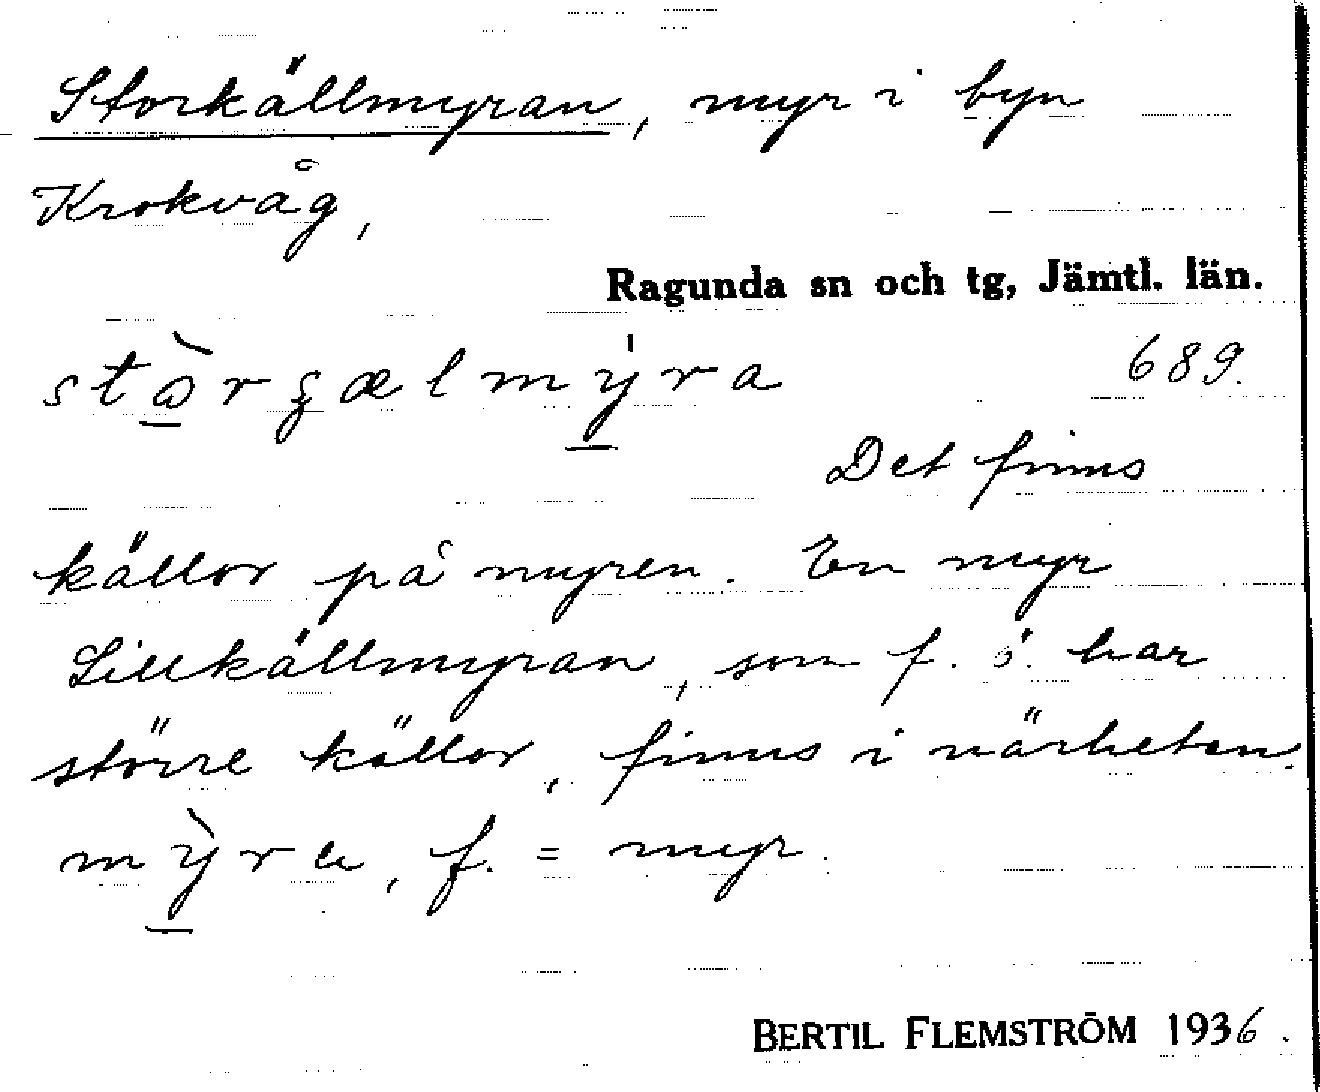 Storkällmyran, myr i byn
Krokvåg,
Ragunda sn och tg, Jämtl. län.
689.
Det finns
källor på myren. En myr
Lillkällmyran, som f. ö. har
större källor, finns i närheten.
f. = myr.
BERTIL FLEMSTRÖM 1936.